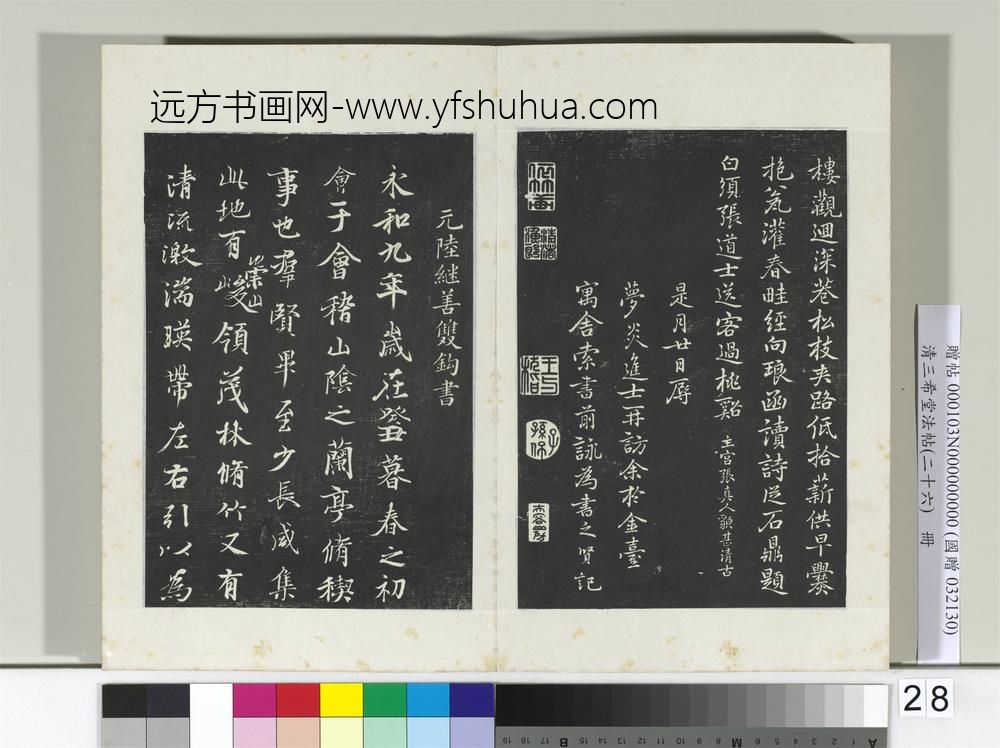 远方书画网-www.yfshuhua.com
樓觀迴深巷松枝夾路低拾薪供早爨
抱瓮灌春畦經向琅函讀詩從石鼎題
白須張道士送客過桃谿 主宮張真人貌甚清古
是月廿日
夢炎進士再訪余於金臺
寓舍索書前詠為書之 賢記
元陸继善雙鈎書
永和九年歲在癸丑暮春之初
會于會稽山陰之蘭亭脩稧
事也羣賢畢至少長咸集
此地有崇山峻領茂林脩竹又有
清流激湍暎帶左右引以為
贈帖 000103N000000000 (國贈 032130)
清三希堂法帖(二十六) 冊
28